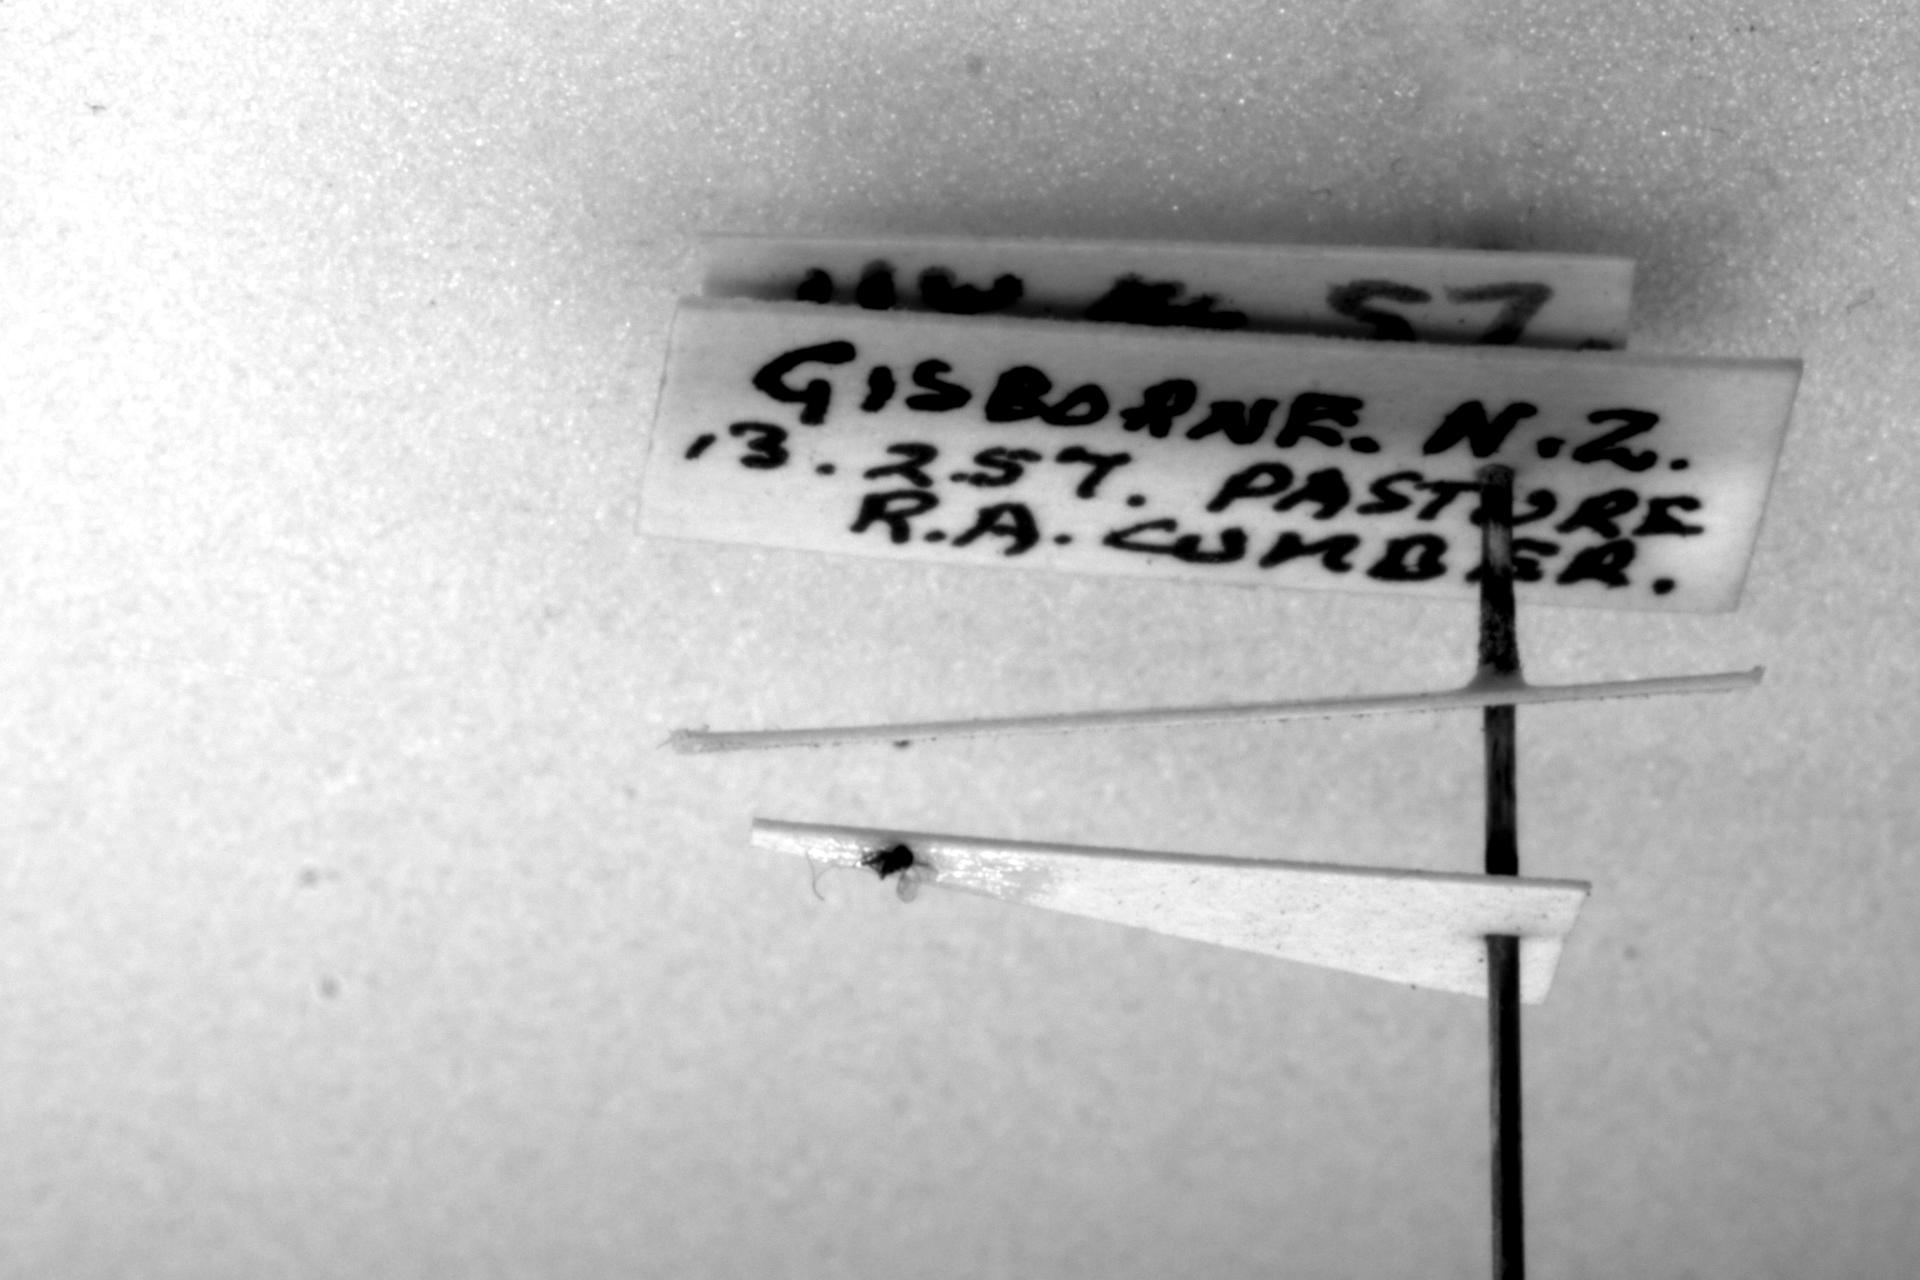 57
GISBORNE. N.Z.
13. 2.57. PASTURE
R.A. CUMBER.